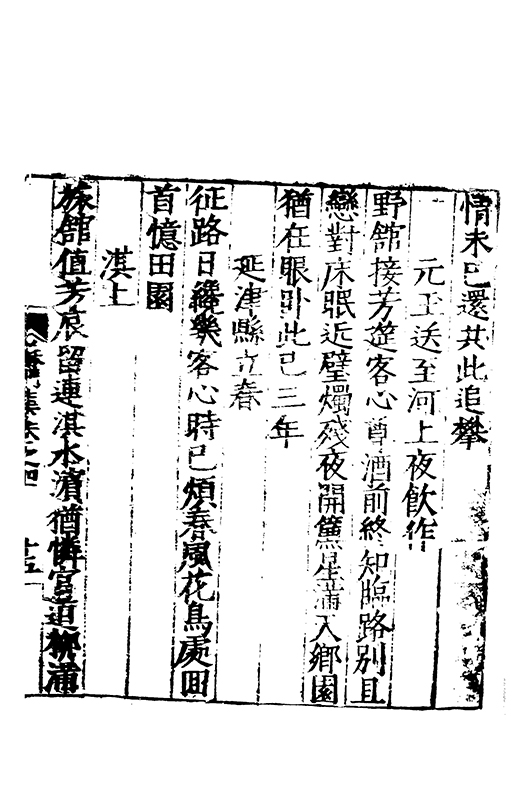 情未已還共此追攀
元王送至河上夜飲作
野舘接芳筵客心尊酒前終知臨路別且
戀對床眠近壁燭殘夜開簾星滿天鄉園
猶在眼卧此已三年
延津縣立春
征路日紛紛客心時已煩春風花鳥處回
首憶田園
淇上
旅舘值芳辰留連淇水濱猶憐官道柳浦
集卷之四
十五